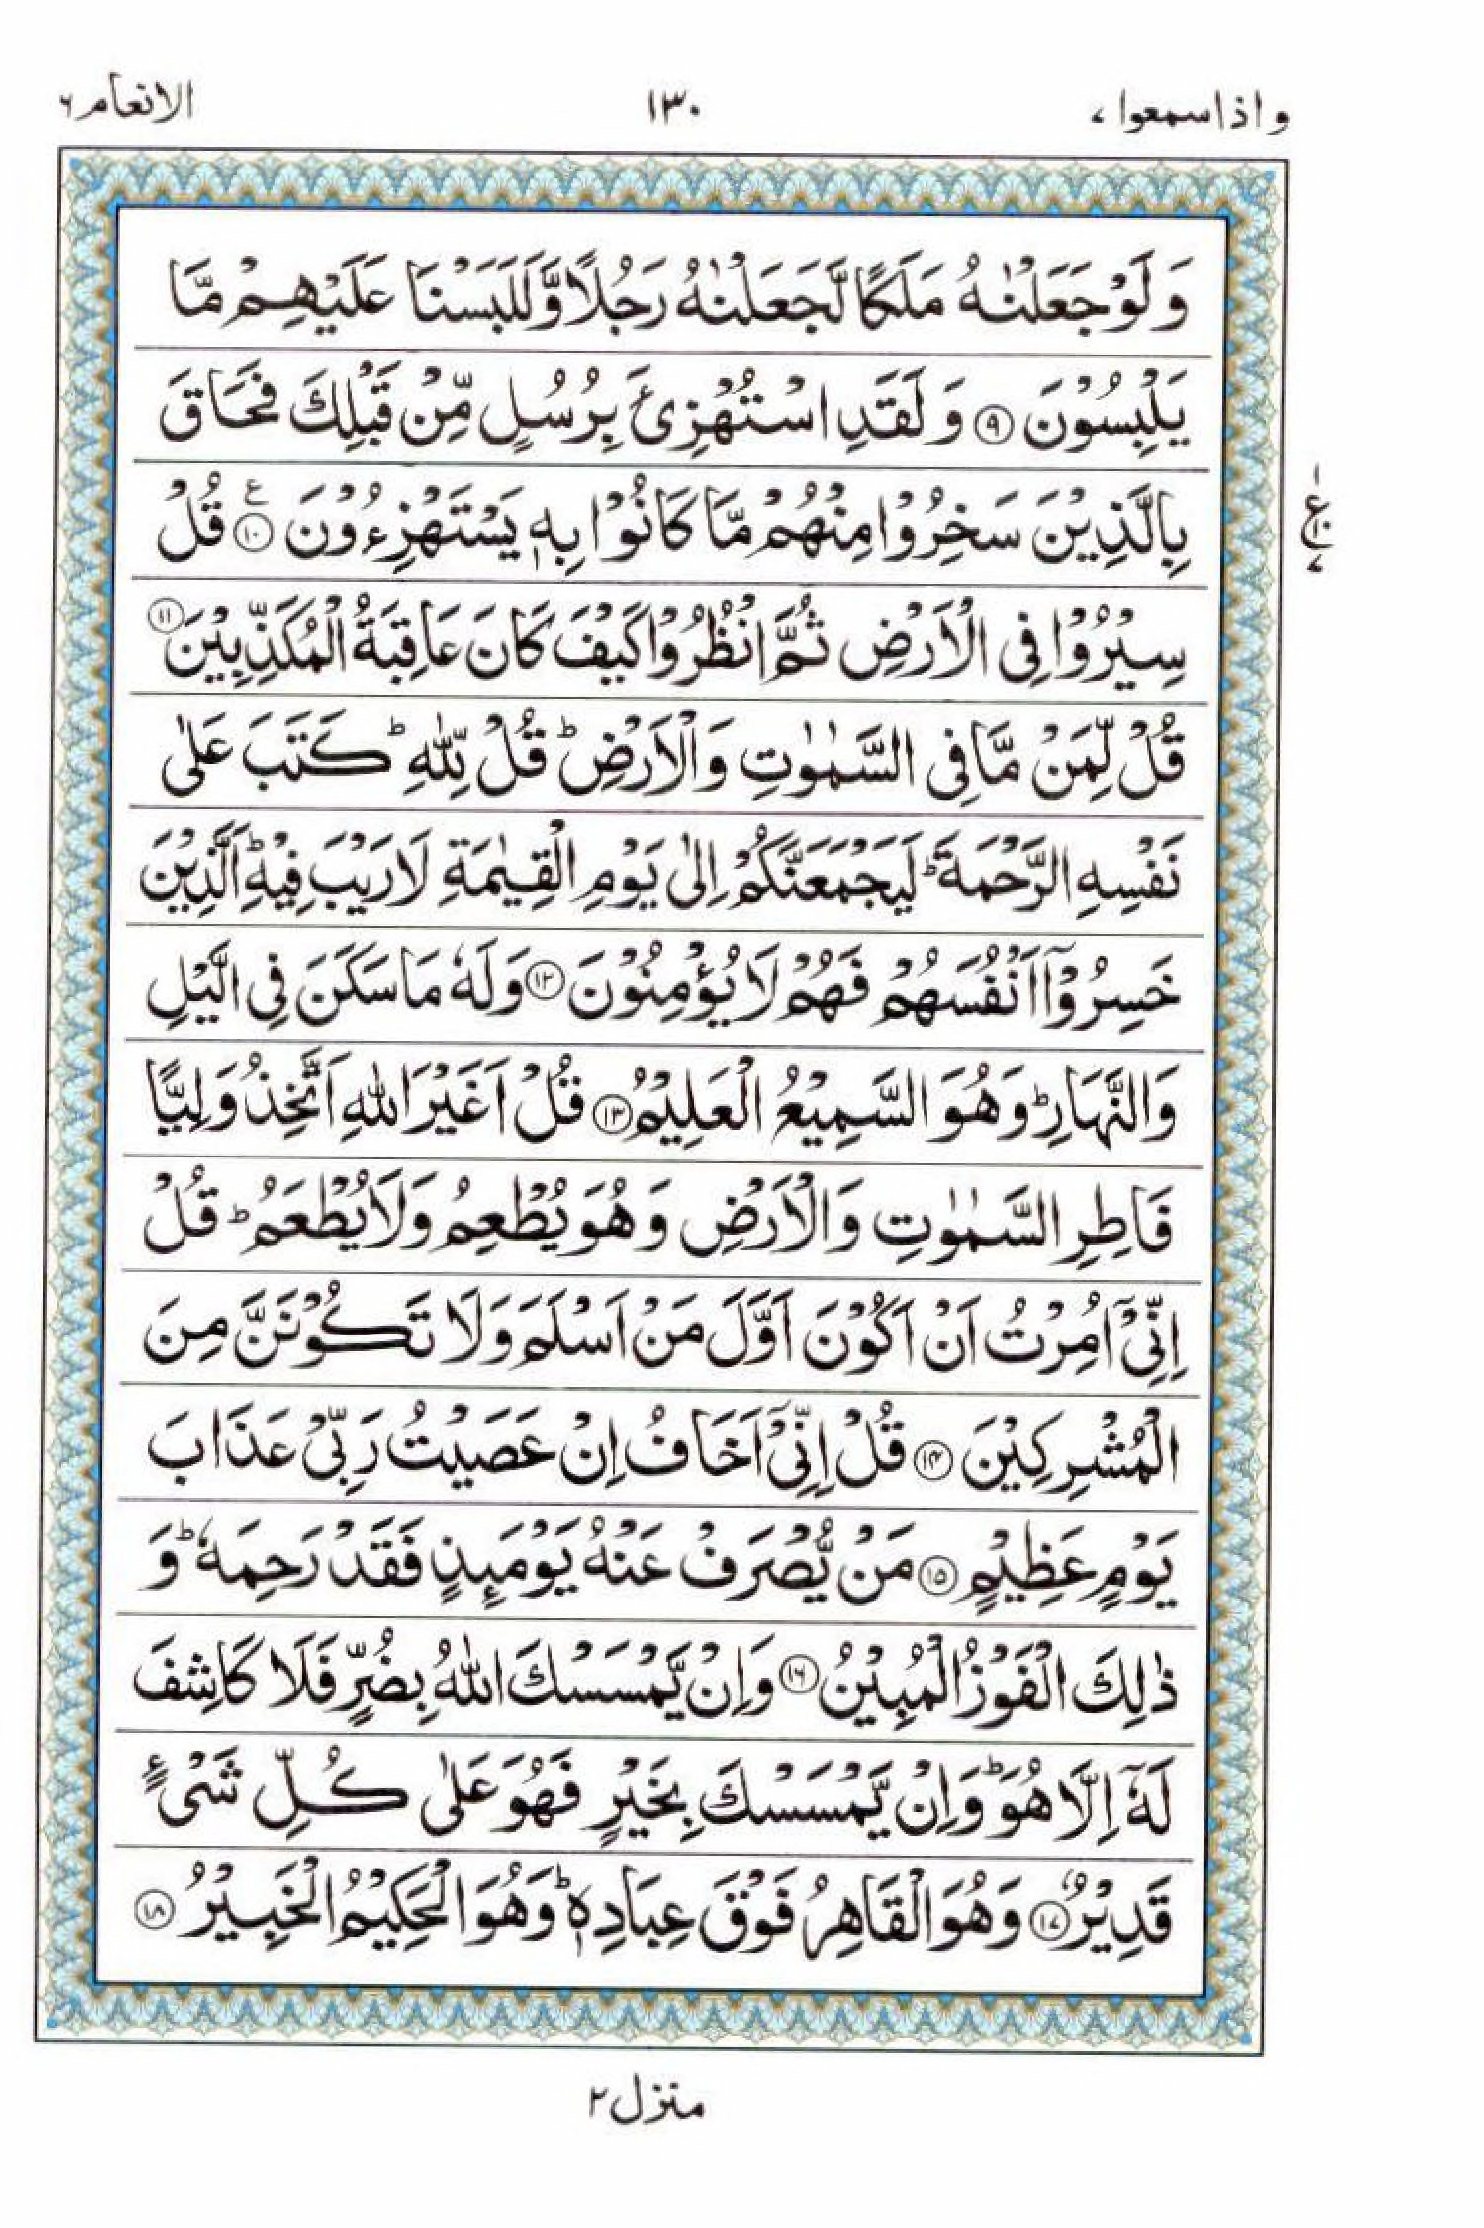 واذاسمعوا ٧
١٣٠
الانعام ٦
وَلَوْ جَعَلْنٰهُ مَلَكًا لَّجَعَلْنٰهُ رَجُلًا وَّلَلَبَسْنَا عَلَيْهِمْ مَّا
يَلْبِسُوْنَ ۹ وَلَقَدِ اسْتُهْزِئَ بِرُسُلٍ مِّنْ قَبْلِكَ فَحَاقَ
بِالَّذِيْنَ سَخِرُوْا مِنْهُمْ مَّا كَانُوْا بِهٖ يَسْتَهْزِءُوْنَ ۱۰ ع قُلْ
سِيْرُوْا فِى الْاَرْضِ ثُمَّ انْظُرُوْا كَيْفَ كَانَ عَاقِبَةُ الْمُكَذِّبِيْنَ ۱۱
قُلْ لِّمَنْ مَّا فِى السَّمٰوٰتِ وَالْاَرْضِ ؕ قُلْ لِّلّٰهِ ؕ كَتَبَ عَلٰى
نَفْسِهِ الرَّحْمَةَ ؕ لَيَجْمَعَنَّكُمْ اِلٰى يَوْمِ الْقِيٰمَةِ لَا رَيْبَ فِيْهِ ؕ اَلَّذِيْنَ
خَسِرُوْۤا اَنْفُسَهُمْ فَهُمْ لَا يُؤْمِنُوْنَ ۱۲ وَلَهٗ مَا سَكَنَ فِى الَّيْلِ
وَالنَّهَارِ ؕ وَهُوَ السَّمِيْعُ الْعَلِيْمُ ۱۳ قُلْ اَغَيْرَ اللّٰهِ اَتَّخِذُ وَلِيًّا
فَاطِرِ السَّمٰوٰتِ وَالْاَرْضِ وَهُوَ يُطْعِمُ وَلَا يُطْعَمُ ؕ قُلْ
اِنِّىْۤ اُمِرْتُ اَنْ اَكُوْنَ اَوَّلَ مَنْ اَسْلَمَ وَلَا تَكُوْنَنَّ مِنَ
الْمُشْرِكِيْنَ ۱۴ قُلْ اِنِّىْۤ اَخَافُ اِنْ عَصَيْتُ رَبِّىْ عَذَابَ
يَوْمٍ عَظِيْمٍ ۱۵ مَنْ يُّصْرَفْ عَنْهُ يَوْمَىِٕذٍ فَقَدْ رَحِمَهٗ ؕ وَ
ذٰلِكَ الْفَوْزُ الْمُبِيْنُ ۱۶ وَاِنْ يَّمْسَسْكَ اللّٰهُ بِضُرٍّ فَلَا كَاشِفَ
لَهٗۤ اِلَّا هُوَ ؕ وَاِنْ يَّمْسَسْكَ بِخَيْرٍ فَهُوَ عَلٰى كُلِّ شَىْءٍ
قَدِيْرٌ ۱۷ وَهُوَ الْقَاهِرُ فَوْقَ عِبَادِهٖ ؕ وَهُوَ الْحَكِيْمُ الْخَبِيْرُ ۱۸
منزل ٢